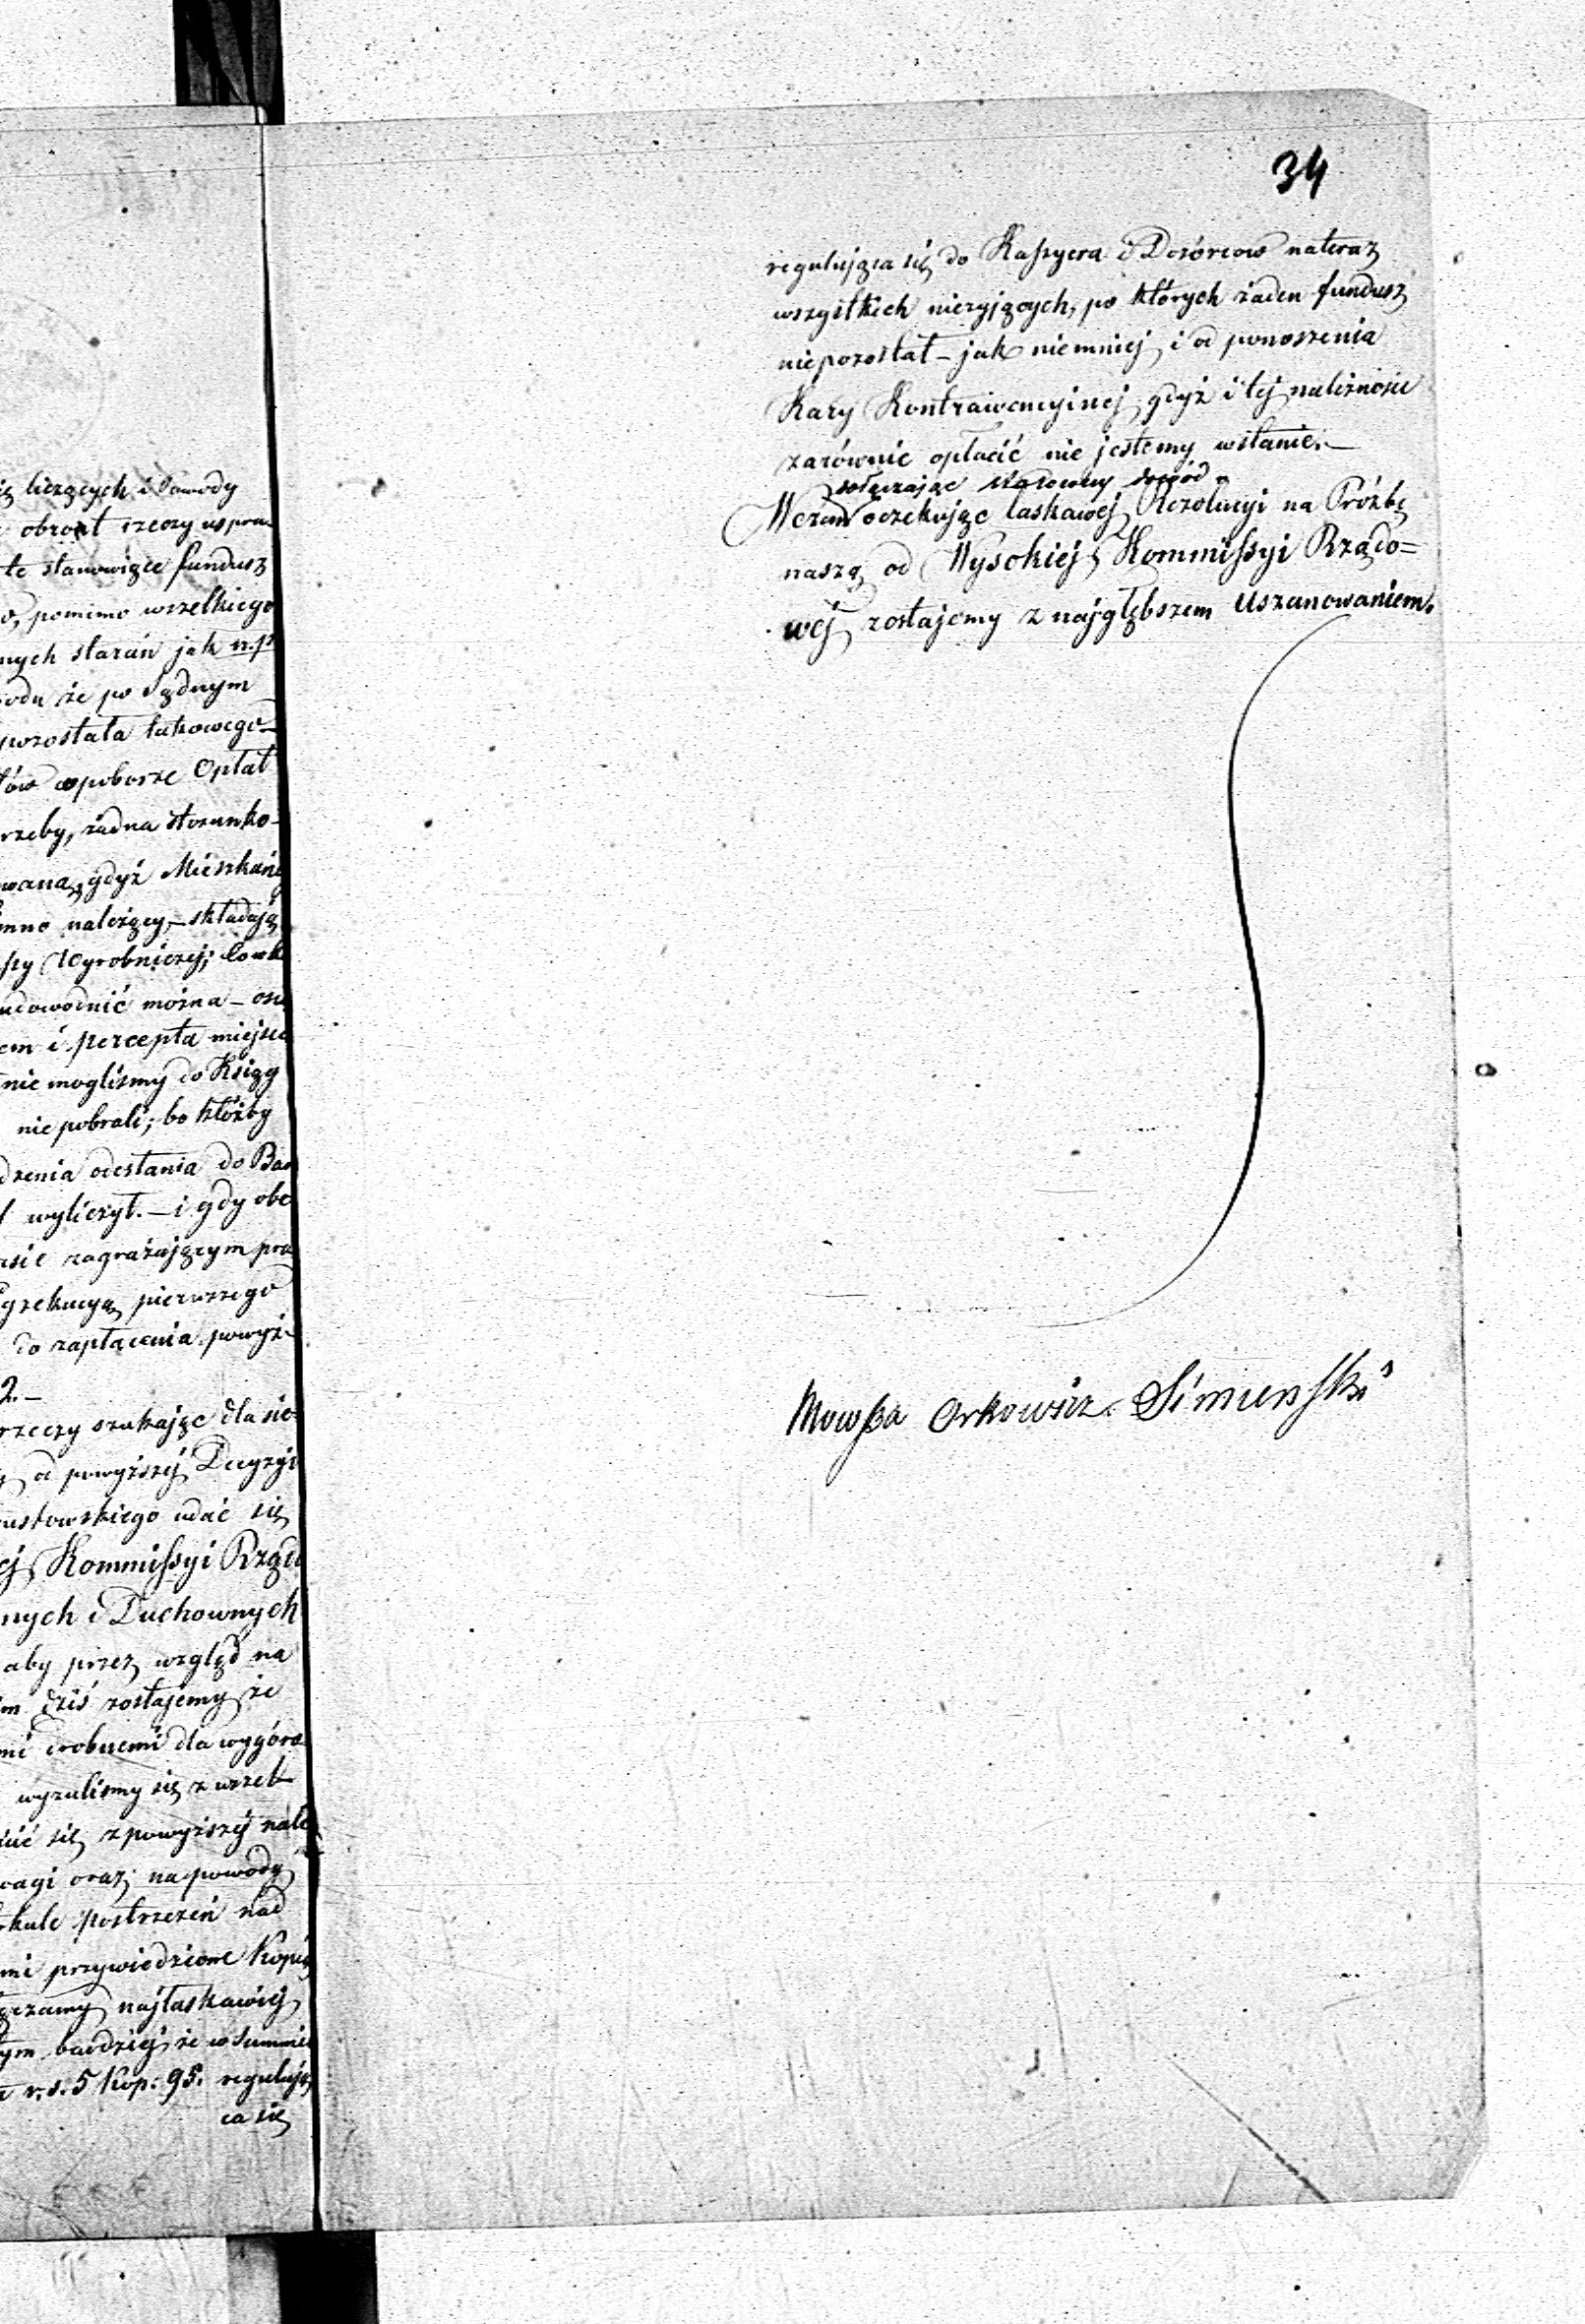 ę liczących i dowody
obrót rzeczy uspra-
te stanowiące fundusz
pomimo wszelkiego
nych starań jak n.p.
wodu że po żadnym
pozostała takowego
ów w poborze Opłat
rzeby, żadna stosunko-
wana, gdyż Mieszkańcy
inno należący, - składają
Wyrobniczej;
udowodnić można -
em i percepta miejsca
nie mogliśmy do Ksiąg
nie pobrali; bo któżby
dzenia odesłania do
wyliczył. - i gdy obe
asie zagrażającym
gzekucyą pierwszego
do zapłacenia powyż-
2. -
rzeczy szukając dla sie-
od powyższej Decyzyi
ustowskiego udać się
ej Kommissyi Rządo
nych i Duchownych
aby przez wzgląd na
m dziś zostajemy że
mi drobnemi dla wygóro
wyzuliśmy się z wszel-
ścić się z powyższej nale
wagi oraz na powody
rkule postrzeżeń nad
mi przywiedzione Kopią
ączamy najłaskawiej
tym bardziej że w Summie
r.s. 5 Kop: 95. regulują
ca się
34
regulująca się do Kassyera i Dozórców nateraz
wszystkich nieżyjących, po których żaden fundusz
niepozostał - jak niemniej i od ponoszenia
Kary Kontrawencyinej gdyż i tej należności
zarównie opłacić nie jestemy wstanie. -
dołączając stosowny dowód
W czem oczekując łaskawej Rezolucyi na Próźbę
naszą od Wysokiej Kommissyi Rządo=
wej zostajemy z najgłębszem Uszanowaniem.
Mowsza Orkowicz Simenski